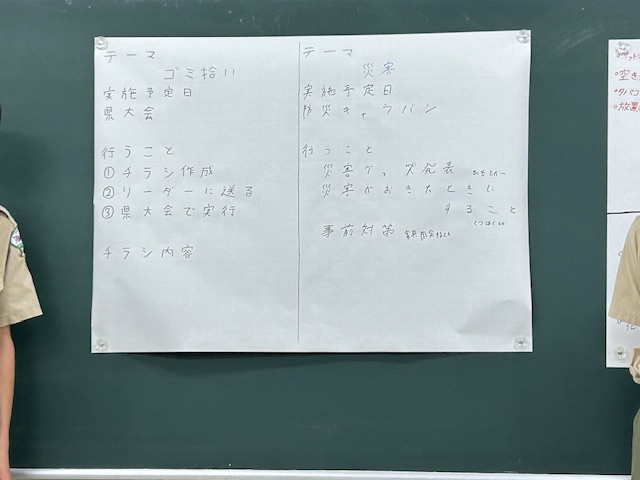 テーマ
ゴミ拾い
実施予定日
県大会
行うこと
①チラシ作成
②リーダーに送る
③県大会で実行
チラシ内容
テーマ
災害
実施予定日
防災キャラバン
行うこと
災害グッズ発表
災害がおきたときに
すること
事前対策